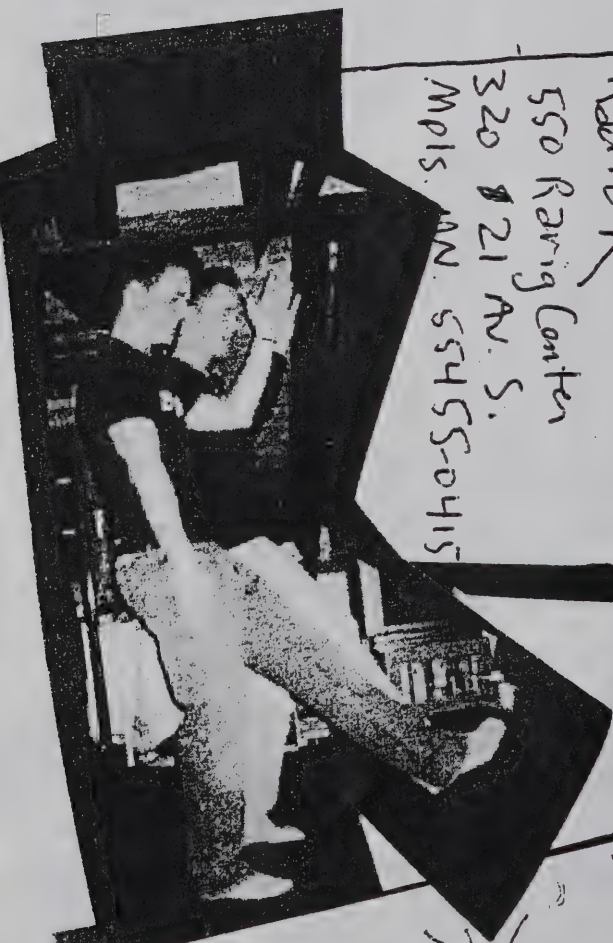 550 Rarig Center
320 21 Av. S.
Mpls. MN. 55455-0415